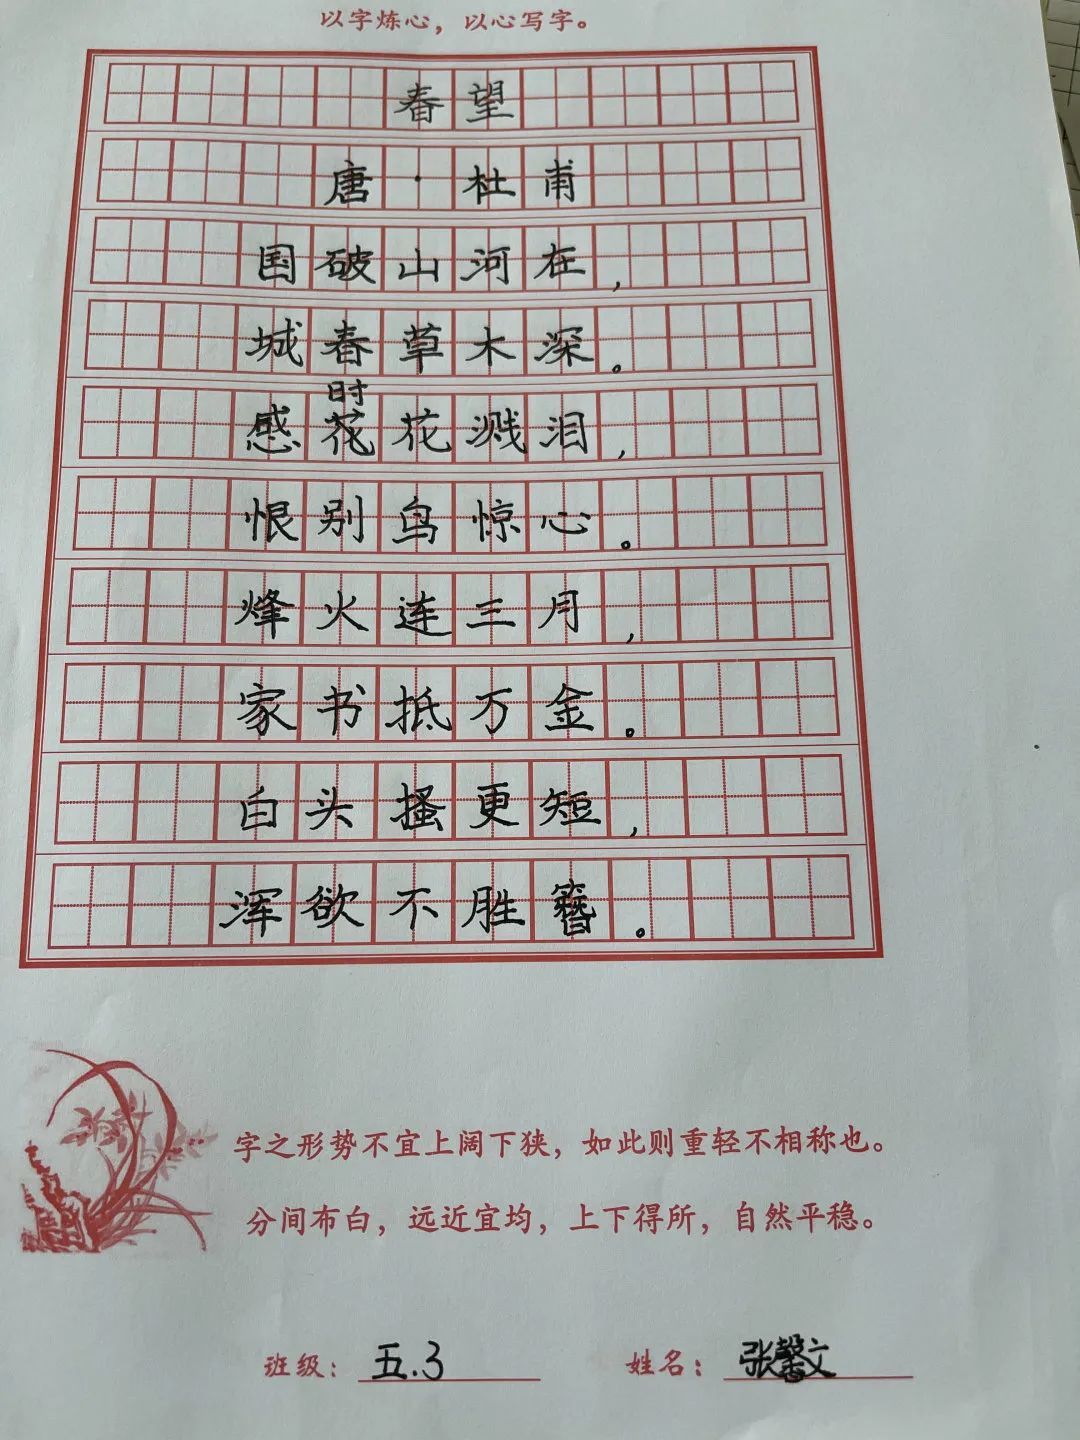 以字炼心，以心写字。
春望
唐·杜甫
国破山河在，
城春草木深。
时
感花花溅泪，
恨别鸟惊心。
烽火连三月，
家书抵万金。
白头搔更短，
浑欲不胜簪。
字之形势不宜上阔下狭，如此则重轻不相称也。
分间布白，远近宜均，上下得所，自然平稳。
班级：五.3 姓名：张馨文